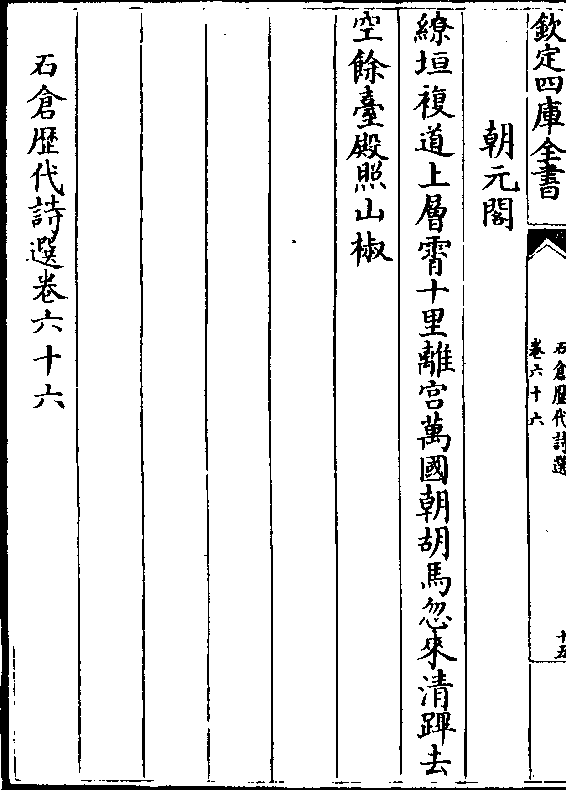 欽定四庫全書
石倉歴代詩選
卷六十六
十五
朝元閣
繚垣複道上層霄十里離宫萬國朝胡馬忽來清蹕去
空餘臺殿照山椒
石倉歴代詩選卷六十六